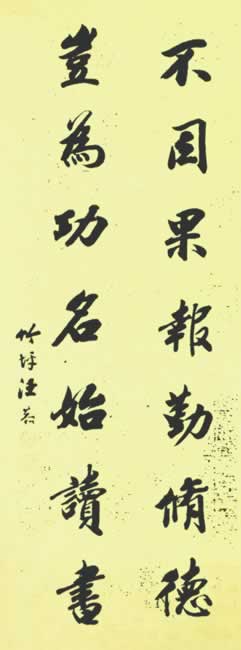 不因果報勤脩德
豈為功名始讀書
竹坪汪恭